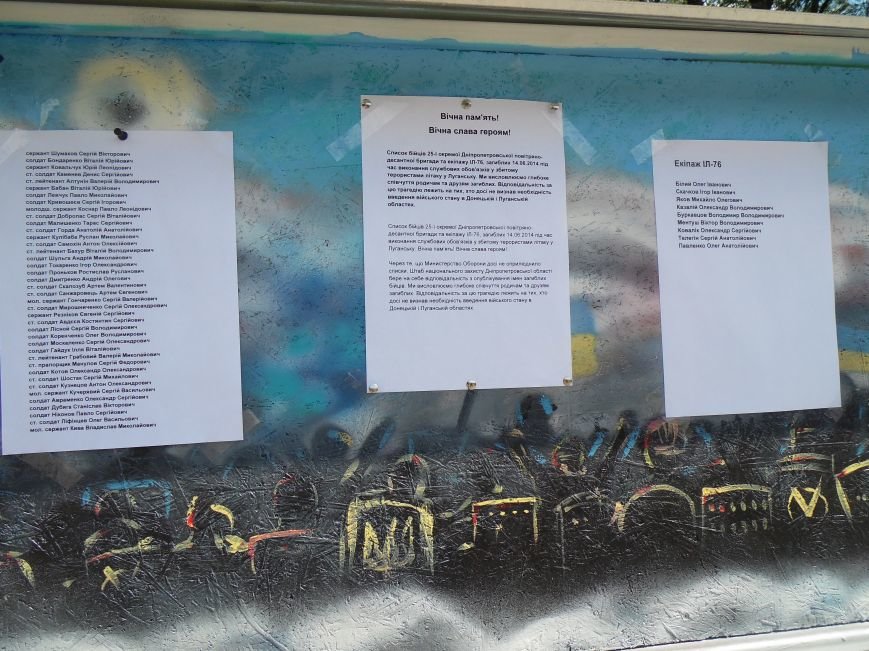 сержант Шумаков Сергій Вікторович
солдат Бондаренко Віталій Юрійович
сержант Ковальчук Юрій Леонідович
ст. солдат Каменев Денис Сергійович
ст. лейтенант Алтунін Валерій Володимирович
сержант Бабан Віталій Юрійович
солдат Левчук Павло Миколайович
солдат Кривошеєв Сергій Ігорович
молодш. сержант Коснар Павло Леонідович
ст. солдат Добропас Сергій Віталійович
солдат Малишенко Тарас Сергійович
ст. солдат Горда Анатолій Анатолійович
сержант Кулібаба Руслан Миколайович
ст. солдат Самохін Антон Олексійович
ст. лейтенант Бахур Віталій Володимирович
солдат Шульга Андрій Миколайович
солдат Токаренко Ігор Олександрович
солдат Проньков Ростислав Русланович
солдат Дмитренко Андрій Олегович
ст. солдат Скалозуб Артем Валентинович
ст. солдат Санжаровець Артем Євгенович
мол. сержант Гончаренко Сергій Валерійович
ст. солдат Мирошниченко Сергій Олександрович
сержант Резніков Євгеній Сергійович
ст. солдат Авдєєв Костянтин Сергійович
солдат Лісной Сергій Володимирович
солдат Коренченко Олег Володимирович
солдат Москаленко Сергій Олександрович
солдат Гайдук Ілля Віталійович
ст. лейтенант Грабовий Валерій Миколайович
ст. прапорщик Мамулов Сергій Федорович
солдат Котов Олександр Олександрович
ст. солдат Шостак Сергій Михайлович
ст. солдат Кузнецов Антон Олександрович
мол. сержант Кучерявий Сергій Васильович
солдат Авраменко Олександр Сергійович
солдат Дубяга Станіслав Вікторович
солдат Ніконов Павло Сергійович
ст. солдат Ліфінцев Олег Васильович
мол. сержант Кива Владислав Миколайович
Вічна пам'ять!
Вічна слава героям!
Список бійців 25-ї окремої Дніпропетровської повітряно-
десантної бригади та екіпажу ІЛ-76, загиблих 14.06.2014 під
час виконання службових обов'язків у збитому
терористами літаку у Луганську. Ми висловлюємо глибоке
співчуття родичам та друзям загиблих. Відповідальність за
цю трагедію лежить на тих, хто досі не визнав необхідність
введення військового стану в Донецькій і Луганській
областях.
Список бійців 25-ї окремої Дніпропетровської повітряно-
десантної бригади та екіпажу ІЛ-76, загиблих 14.06.2014 під час
виконання службових обов'язків у збитому терористами літаку у
Луганську. Вічна пам'ять! Вічна слава героям!
Через те, що Министерство Оборони досі не оприлюднило
списки, Штаб національного захисту Дніпропетровської області
бере на себе відповідальність з опублікування імен загиблих
бійців. Ми висловлюємо глибоке співчуття родичам та друзям
загиблих. Відповідальність за цю трагедію лежить на тих, хто
досі не визнав необхідність введення військового стану в
Донецькій і Луганській областях
Екіпаж ІЛ-76
Білий Олег Іванович
Скачков Ігор Іванович
Яков Михайло Олегович
Казалій Олександр Володимирович
Буркавцов Володимир Володимирович
Ментуш Віктор Володимирович
Коваліх Олександр Сергійович
Телегін Сергій Анатолійович
Павленко Олег Анатолійович